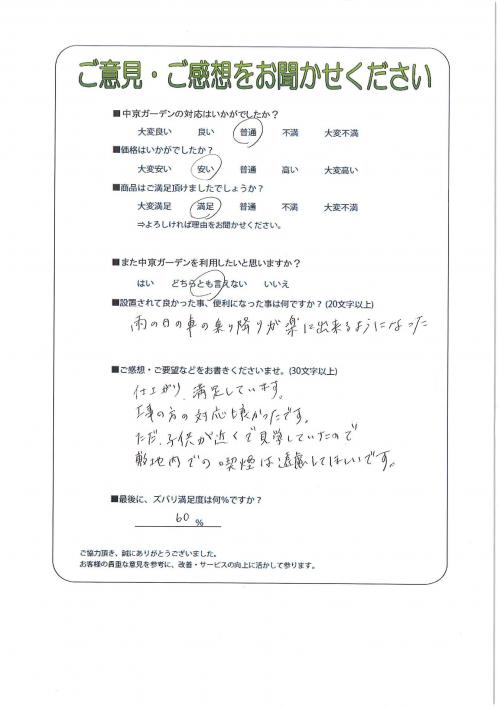 ご意見・ご感想をお聞かせください
■中京ガーデンの対応はいかがでしたか？
大変良い 良い 普通 不満 大変不満
■価格はいかがでしたか？
大変安い 安い 普通 高い 大変高い
■商品はご満足頂けましたでしょうか？
大変満足 満足 普通 不満 大変不満
⇒よろしければ理由をお聞かせください。
■また中京ガーデンを利用したいと思いますか？
はい どちらとも言えない いいえ
■設置されて良かった事、便利になった事は何ですか？(20文字以上)
雨の日の車の乗り降りが楽に出来るようになった
■ご感想・ご要望などをお書きくださいませ。(30文字以上)
仕上がり、満足しています。
工事の方の対応も良かったです。
ただ、子供が近くで見学していたので
敷地内での喫煙は遠慮してほしいです。
■最後に、ズバリ満足度は何％ですか？
60 %
ご協力頂き、誠にありがとうございました。
お客様の貴重な意見を参考に、改善・サービスの向上に活かして参ります。